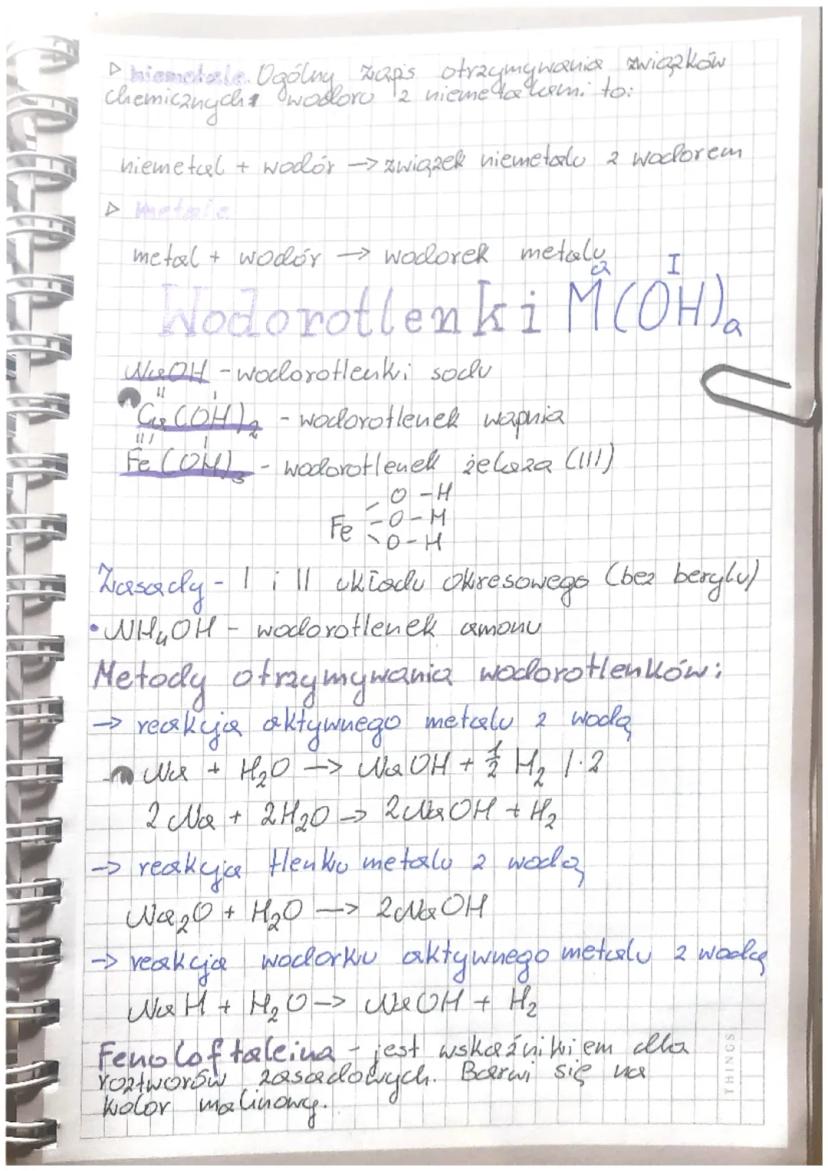 ▷ niemetale. Ogólny zapis otrzymywania związków
chemicznych wodoru z niemetalami to:
niemetal + wodór → związek niemetalu z wodorem
▷ metale
metal + wodór → wodorek metalu
a I
Wodorotlenki M(OH)a
NaOH - wodorotlenki sodu
II I
Ca(OH)2 - wodorotlenek wapnia
III I
Fe(OH)3 - wodorotlenek żelaza (III)
O - H
Fe - O - H
O - H
Zasady - I i II układu okresowego (bez berylu)
• NH4OH - wodorotlenek amonu
Metody otrzymywania wodorotlenków:
→ reakcja aktywnego metalu z wodą
Na + H2O → NaOH + 1/2 H2 /·2
2Na + 2H2O → 2NaOH + H2
→ reakcja tlenku metalu z wodą
Na2O + H2O → 2NaOH
→ reakcja wodorku aktywnego metalu z wodą
NaH + H2O → NaOH + H2
Fenoloftaleina - jest wskaźnikiem dla
roztworów zasadowych. Barwi się na
kolor malinowy.
THINGS